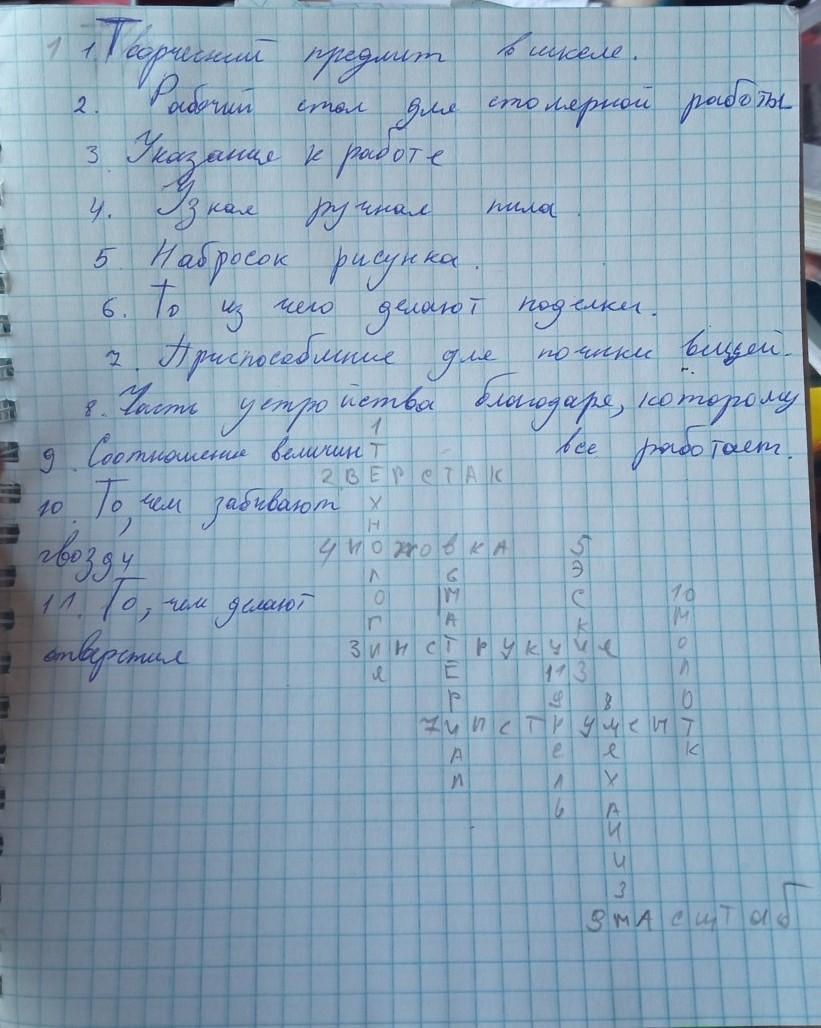 1 1. Творческий предмет в школе.
2. Рабочий стол для столярной работы
3 Указание к работе
4. Узкая ручная пила.
5 Набросок рисунка.
6. То из чего делают поделки.
7. Приспособление для починки вещей.
8. Часть устройства благодаря, которому
9. Соотношение величин все работает.
10. То, чем забивают
гвозду
11. То, чем делают
отверстия
1
Т
2 В Е Р С Т А К
Х
Н
4 Н О Ж О В К А 5
Л 6 Э
О М С 10
Г А К М
3 И Н С Т Р У К Ц И Я О
Я Е 11 З Л
Р 9 8 О
7 И Н С Т Р У М Е Н Т
А Е Е К
Л Л Х
Ь А
Н
И
З
9 М А С Ш Т а б